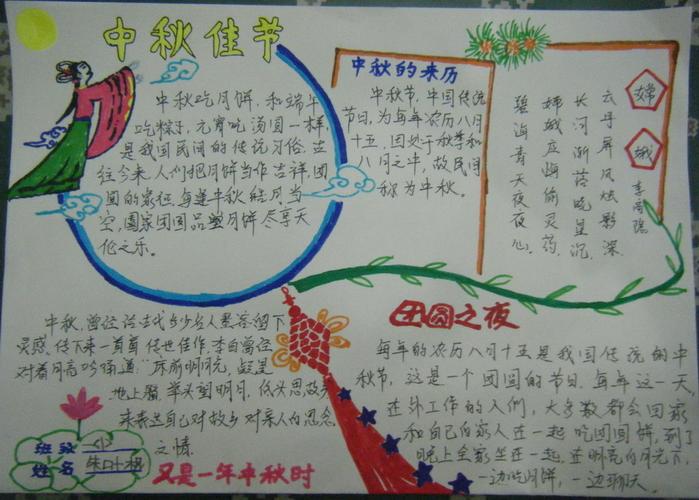 中秋佳节
中秋吃月饼,和端午
吃粽子,元宵吃汤圆一样,
是我国民间的传说习俗。古
往今来,人们把月饼当作吉祥,团
圆的象征。每逢中秋,皓月当
空,阖家团圆,品月饼,尽享天
伦之乐。
中秋的来历
中秋节,中国传统
节日,为每年农历八月
十五,因处于秋季和
八月之中,故民间
称为中秋。
嫦娥
李商隐
云母屏风烛影深
长河渐落晓星沉
嫦娥应悔偷灵药
碧海青天夜夜心
中秋,曾经给古代多少名人墨客留下
灵感,传下来一首首传世佳作,李白曾经
对着月亮吟诵道“床前明月光,疑是
地上霜,举头望明月,低头思故乡
来表达自己对故乡对亲人的思念
之情
班级
姓名
又是一年中秋时
团圆之夜
每年的农历八月十五是我国传统的中
秋节,这是一个团圆的节日。每年这一天
在外工作的人们,大多数都会回家
和自己的家人在一起吃团圆饼,到了
晚上全家坐在一起,在明亮的月光下,
一边吃月饼,一边聊天。